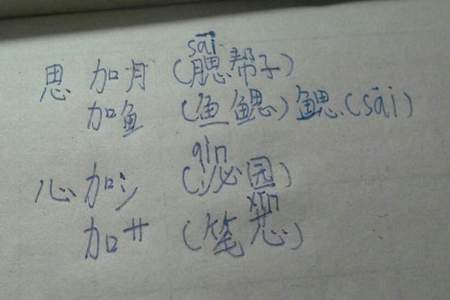 sāi
思 加月 (腮帮子)
加鱼 (鱼鳃) 鳃 (sāi)
qin
心 加氵 (沁园)
xin
加艹 (笔芯)